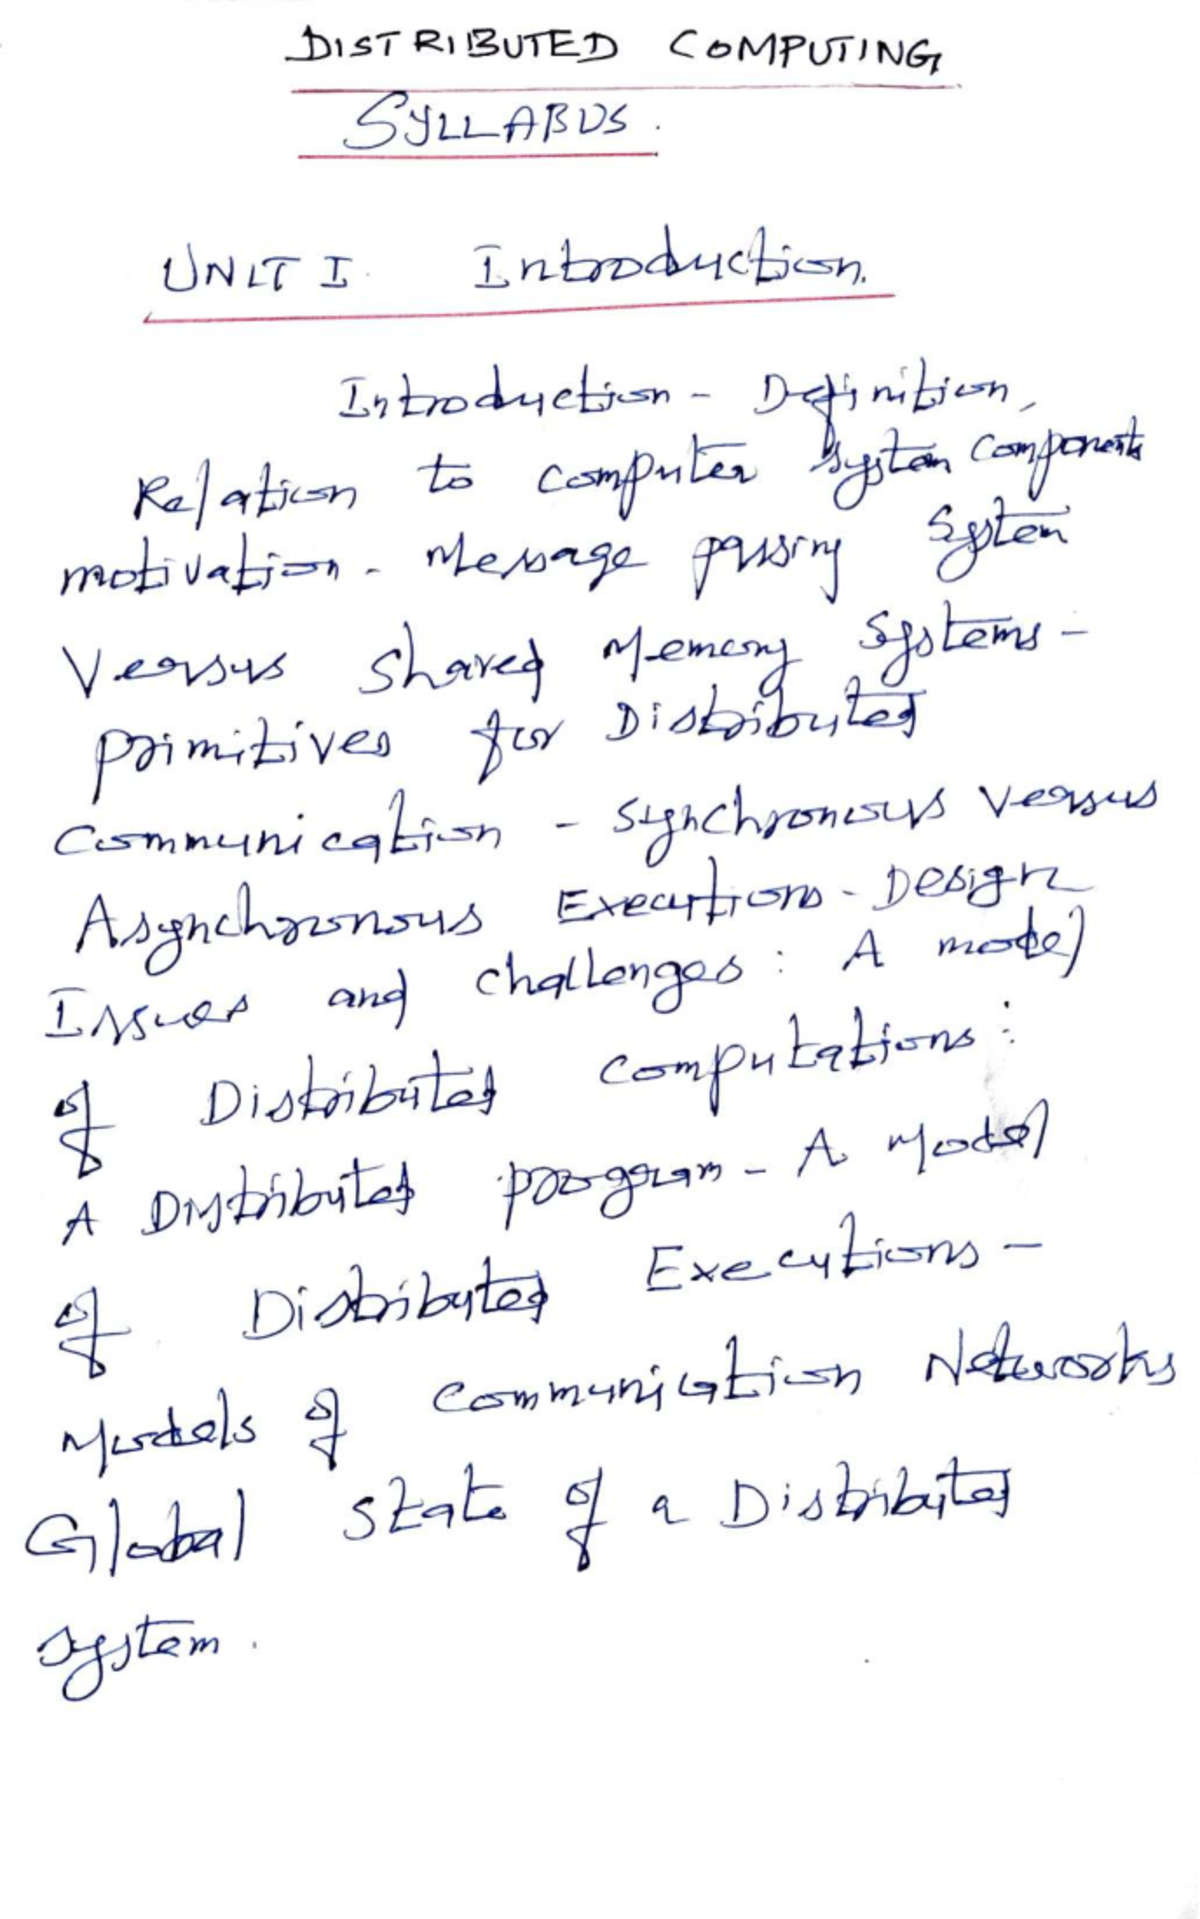 DISTRIBUTED COMPUTING
SYLLABUS.
UNIT I. Introduction.
Introduction - Definition,
Relation to computer system components
motivation - Message passing System
Versus shared Memory Systems -
primitives for Distributed
Communication - synchronous versus
Asynchronous Executions - Design
Issues and challenges : A model
of Distributed computations :
A Distributed program - A Model
of Distributed Executions -
Models of communication Networks
Global state of a Distributed
system.